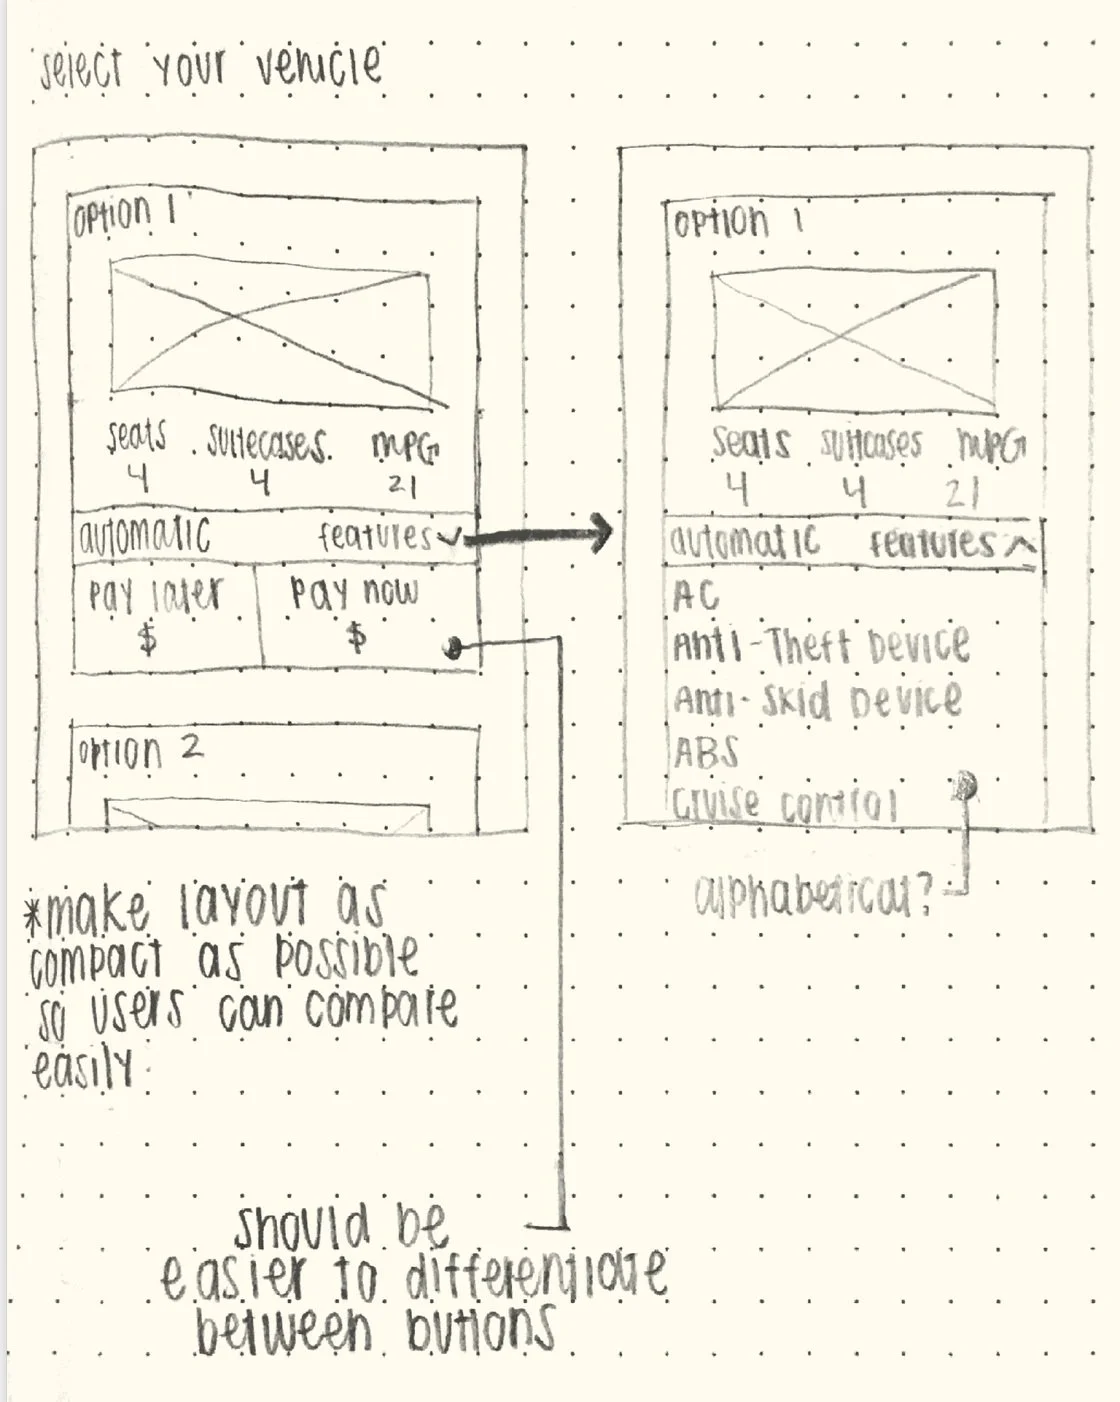 select your vehicle
option 1
seats suitecases. MPG
4 4 21
automatic features
pay later pay now
$ $
option 2
*make layout as
compact as possible
so users can compare
easily.
should be
easier to differentiate
between buttons
option 1
seats suitcases MPG
4 4 21
automatic features
AC
Anti-Theft Device
Anti-Skid Device
ABS
cruise control
alphabetical?